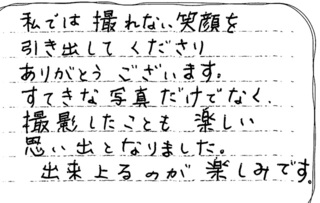 私では撮れない笑顔を
引き出してくださり
ありがとうございます。
すてきな写真だけでなく、
撮影したことも楽しい
思い出となりました。
出来上るのが楽しみです。